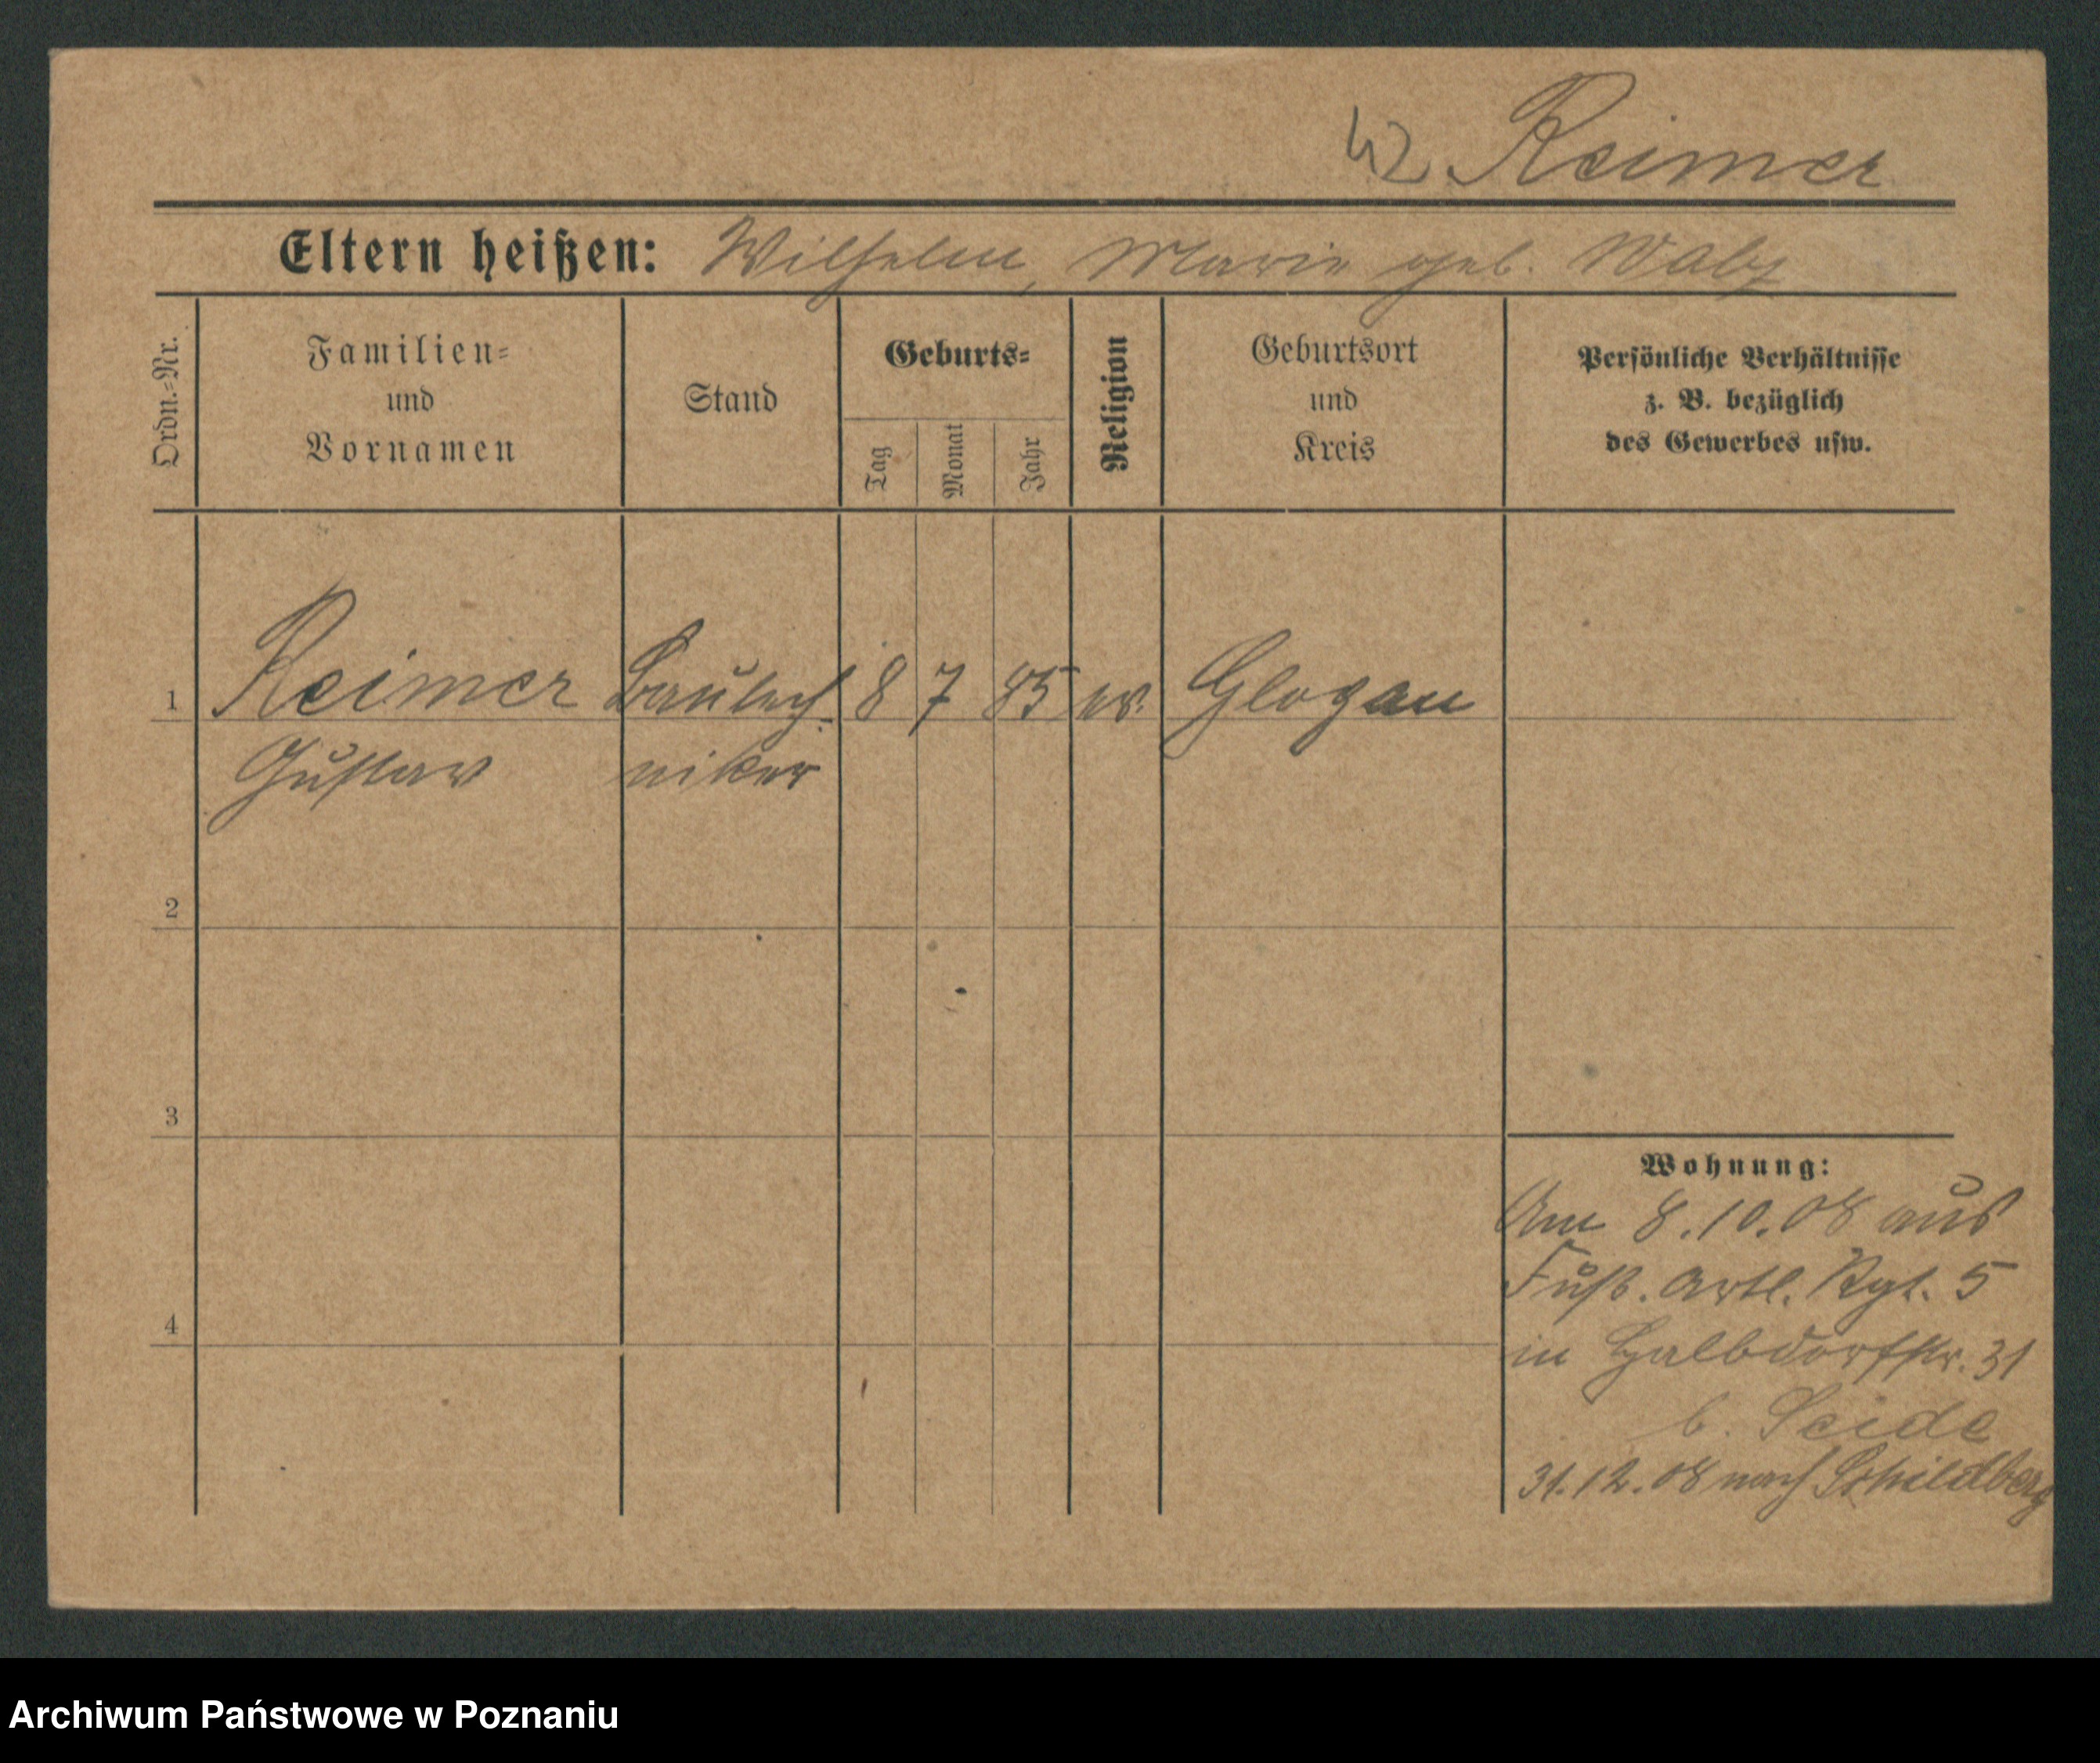 42 Reimer
Eltern heißen: Wilhelm, Marie geb.
Ordn.=Nr.
Familien=
und
Vornamen
Stand
Geburts=
Tag
Monat
Jahr
Religion
Geburtsort
und
Kreis
Persönliche Verhältnisse
z. B. bezüglich
des Gewerbes usw.
1 Reimer Bautech= 8 7 85 ev. Glogau
Gustav niker
2
3
4
Wohnung:
Am 8.10.08 aus
Fuß. Artl. Rgt. 5
in Halbdorfstr. 31
b. Seide
31.12.08 nach Schildberg
Archiwum Państwowe w Poznaniu